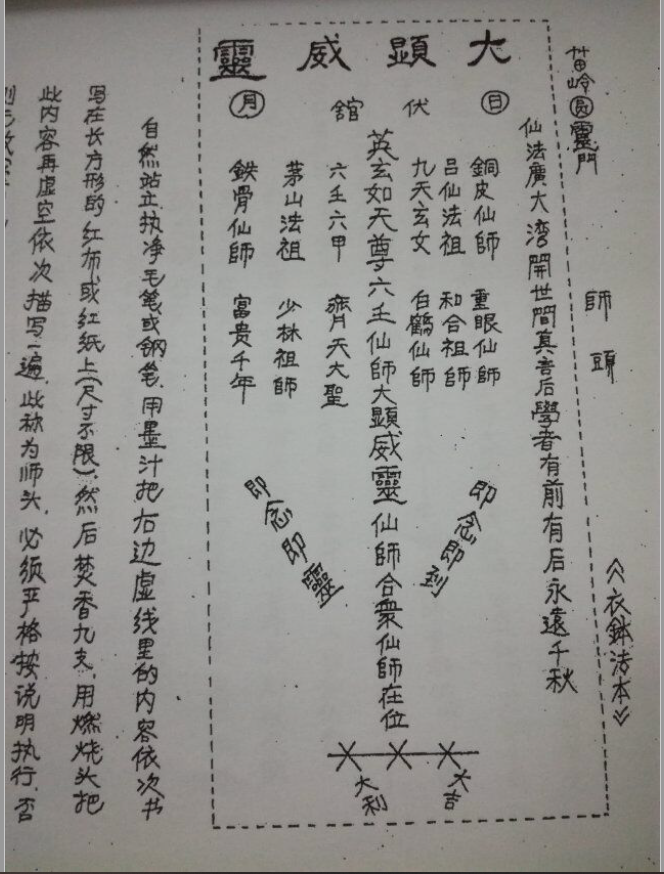 苗岭圆靈門
師頭
《衣鉢法本》
大顯威靈
仙法廣大湾開世間真言后學者有前有后永遠千秋
日
伏
舘
月
銅皮仙師
重眼仙師
吕仙法祖
和合祖師
九天玄女
白鶴仙師
英玄如天尊六壬仙師大顯威靈仙師合衆仙師在位
六壬六甲
齊天大聖
茅山法祖
少林祖師
鉄骨仙師
富贵千年
即念即到
即念即靈
大吉
大利
自然站立执净毛笔或钢笔.用墨汁把右边虚线里的内容依次书
写在长方形的红布或红纸上(尺寸不限).然后焚香九支.用燃烧头把
此内容再虚空依次描写一遍.此称为师头.必须严格按说明执行.否